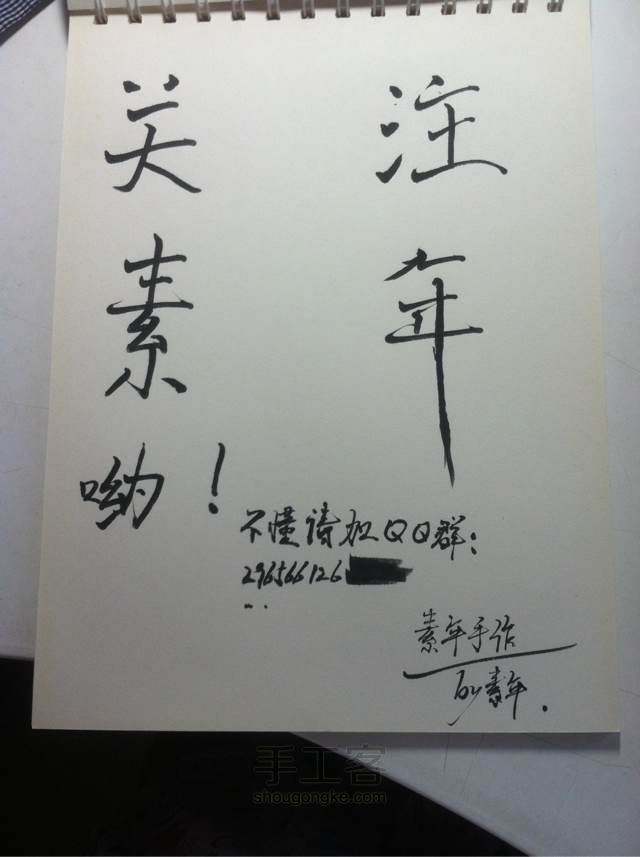 关注
素年
哟！
不懂请加QQ群：
296566126
...
素年手作
by青年.
手工客
shougongke.com